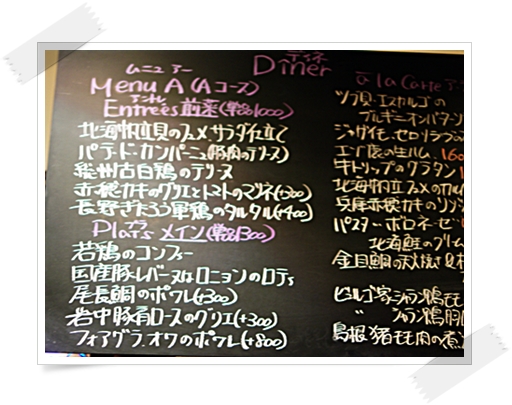 ディネ
Diner
ムニュ アー
Menu A (Aコース)
アントレ
Entrées 前菜 (単品1000)
北海帆立貝のスメ サラダ仕立て
パテ・ド・カンパーニュ(豚肉のテリーヌ)
総州古白鶏のテリーヌ
赤穂カキのグリエとトマトのマリネ(+300)
長野きたろう軍鶏のタルタル(+400)
プラ
Plats メイン (単品1300)
若鶏のコンフィー
国産豚レバーヌはロニョンのロティ
尾長鯛のポワレ(+300)
岩中豚肩ロースのグリエ(+300)
フォアグラ・オワのポワレ(+800)
à la carte ア
ツブ貝・エスカルゴの
ブルギニオンバター
ジャガイモ・セロリラブ
エゾ鹿の生ハム 160
牛トリップのグラタン 1
北海帆立 スメのカル
兵庫赤穂カキのリゾ
パスター ボロネーゼ
北海鮭のクリーム
金目鯛の
ビュルゴ家シャラン鴨もも
〃 シャラン鴨胸
島根 猪もも肉の煮